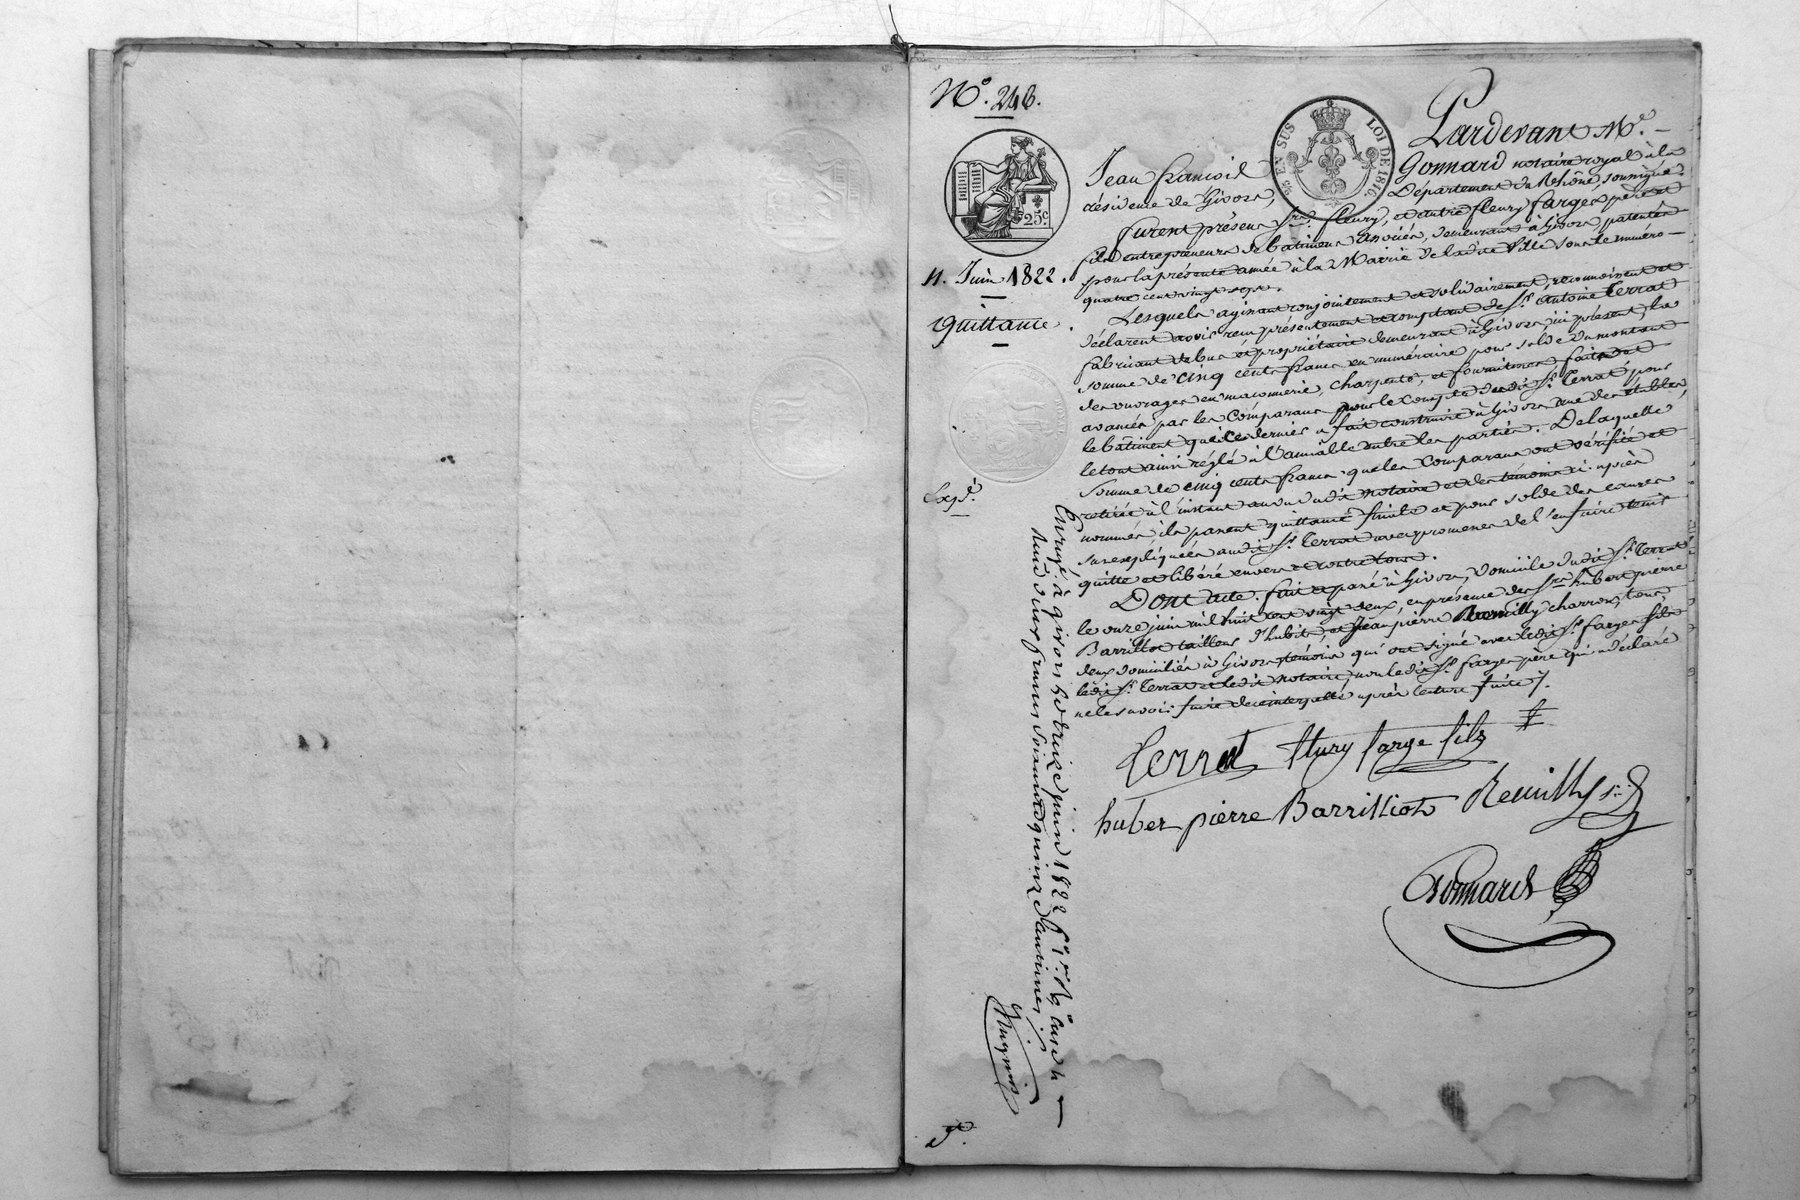 N.º 248.
25.c
EN SUS
LOI DE 1816.
11. Juin 1822.
Quittance.
Exp.é
Pardevant M.e
Jean francois Gonnard notaire royal à la
résidence de Givors, Département du Rhône, soussigné.
furent présens S.rs fleury, et autre fleury farges père et
fils entrepreneurs de batimens associés, demeurant à Givors patentés
pour la présente année à la Mairie de ladite Ville sous le numéro
quatre cent vingt sept.
Lesquels agissant conjointement et solidairement, reconnoissent et
déclarent avoir reçu présentement et comptant de S.r Antoine Terrat
fabricant de bas et propriétaire demeurant à Givors, ici present, la
somme de cinq cents francs en numéraire pour solde du montant
des ouvrages en maconnerie, charpente, et fournitures, faits et
avancés par les Comparans pour le compte dudit S.r Terrat pour
le bâtiment que ce dernier a fait construire à Givors rue des étables,
le tout ainsi réglé à l'amiable entre les parties. De laquelle
somme de cinq cents francs que les Comparans ont vérifiée et
retirée à l'instant au vu dudit notaire et des témoins ci-après
nommés, ils passent quittance finale et pour solde des causes
susexpliquées audit S.r Terrat avec promesse de l'en faire tenir
quitte et libéré envers et contre tous.
Dont acte. fait et passé à Givors, domicile dudit S.r Terrat
le onze juin mil huit cent vingt deux, en présence des S.rs hubert pierre
Barrillot tailleur d'habits, et Jean pierre Remilly charron, tous
deux domiciliés à Givors témoins qui ont signé avec ledit S.r farges fils
ledit S.r Terrat et ledit notaire, non ledit S.r farges père qui a déclaré
ne le savoir faire de ce interpellé après lecture faite.
Terrat fleury farge fils
huber pierre Barrilliot Remilly
Gonnard
Enreg.é à givors le treize juin 1822
Reçu deux francs cinquante quinze centimes